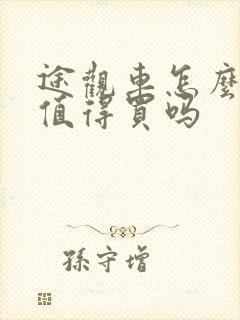 途觀車怎麼
值得買嗎
孫守增